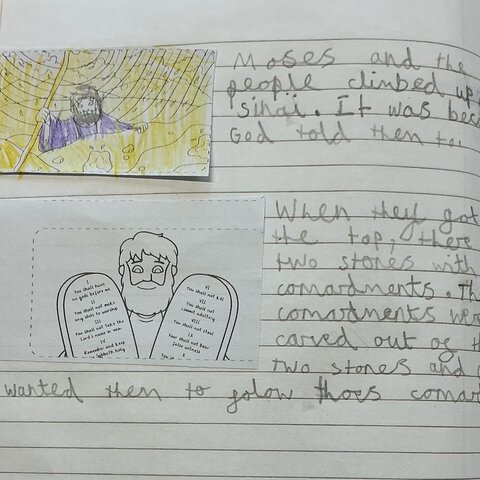 Moses and the
people climbed up
sinai. It was
God told them to.
When they got
the top, there
two stones with
comardments.
comardments
carved out og
two stones and
wanted them to folow thoes
I
You shall have
no gods before me
II
You shall not make
any idols to worship
III
You shall not take the
Lord's name in vain
IV
Remember and keep
Sabbath holy
VI
You shall not kill
VII
You shall not
commit adultery
VIII
You shall not steal
You shall not bear
false witness